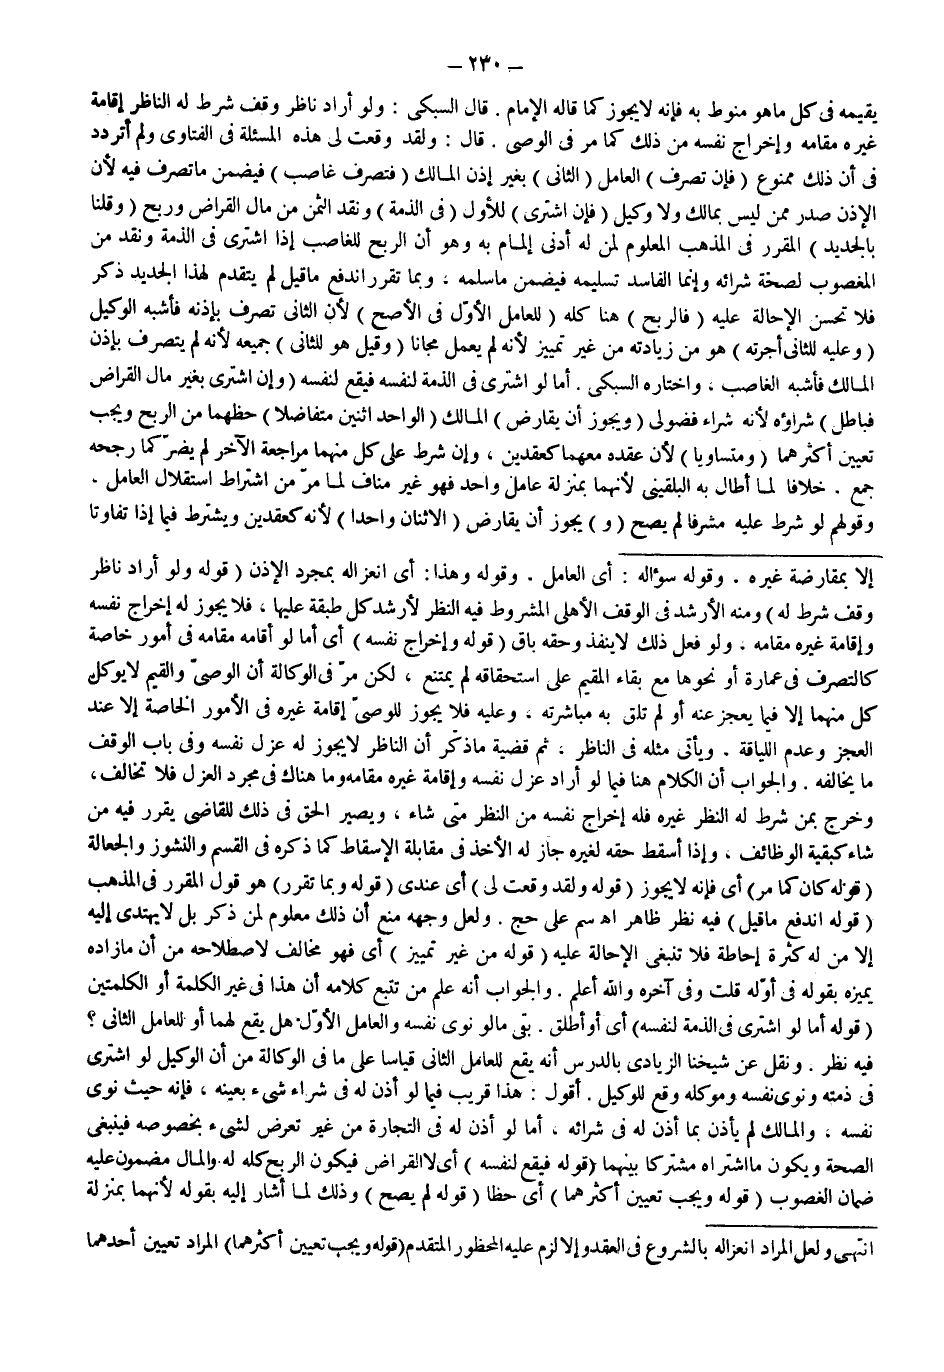 – ٢٣٠ –
يقيمه فى كل ماهو منوط به فإنه لايجوز كما قاله الإمام . قال السبكى : ولو أراد ناظر وقف شرط له الناظر إقامة
غيره مقامه وإخراج نفسه من ذلك كما مر فى الوصى . قال : ولقد وقعت لى هذه المسئلة فى الفتاوى ولم أتردد
فى أن ذلك ممنوع ( فإن تصرف ) العامل ( الثانى ) بغير إذن المالك ( فتصرف غاصب ) فيضمن ماتصرف فيه لأن
الإذن صدر ممن ليس بمالك ولا وكيل ( فإن اشترى ) للأول ( فى الذمة ) ونقد الثمن من مال القراض وربح ( وقلنا
بالجديد ) المقرر فى المذهب المعلوم لمن له أدنى إلمام به وهو أن الربح للغاصب إذا اشترى فى الذمة ونقد من
المغصوب لصحة شرائه وإنما الفاسد تسليمه فيضمن ماسلمه ، وبما تقرر اندفع ماقيل لم يتقدم لهذا الجديد ذكر
فلا تحسن الإحالة عليه ( فالربح ) هنا كله ( للعامل الأوّل فى الأصح ) لأن الثانى تصرف بإذنه فأشبه الوكيل
( وعليه للثانى أجرته ) هو من زيادته من غير تمييز لأنه لم يعمل مجانا ( وقيل هو للثانى ) جميعه لأنه لم يتصرف بإذن
المالك فأشبه الغاصب ، واختاره السبكى . أما لو اشترى فى الذمة لنفسه فيقع لنفسه ( وإن اشترى بغير مال القراض
فباطل ) شراؤه لأنه شراء فضولى ( ويجوز أن يقارض ) المالك ( الواحد اثنين متفاضلا ) حظهما من الربح ويجب
تعيين أكثرهما ( ومتساويا ) لأن عقده معهما كعقدين ، وإن شرط على كل منهما مراجعة الآخر لم يضرّ كما رجحه
جمع . خلافا لما أطال به البلقينى لأنهما بمنزلة عامل واحد فهو غير مناف لما مرّ من اشتراط استقلال العامل .
وقولهم لو شرط عليه مشرفا لم يصح ( و ) يجوز أن يقارض ( الاثنان واحدا ) لأنه كعقدين ويشترط فيما إذا تفاوتا
إلا بمقارضة غيره . وقوله سؤاله : أى العامل . وقوله وهذا : أى انعزاله بمجرد الإذن ( قوله ولو أراد ناظر
وقف شرط له ) ومنه الأرشد فى الوقف الأهلى المشروط فيه النظر لأرشد كل طبقة عليها ، فلا يجوز له إخراج نفسه
وإقامة غيره مقامه ، ولو فعل ذلك لاينفذ وحقه باق ( قوله وإخراج نفسه ) أى أما لو أقامه مقامه فى أمور خاصة
كالتصرف فى عمارة أو نحوها مع بقاء المقيم على استحقاقه لم يمتنع ، لكن مرّ فى الوكالة أن الوصىّ والقيم لايوكل
كل منهما إلا فيما يعجز عنه أو لم تلق به مباشرته ، وعليه فلا يجوز للوصىّ إقامة غيره فى الأمور الخاصة إلا عند
العجز وعدم اللياقة . ويأتى مثله فى الناظر ، ثم قضية ماذكر أن الناظر لايجوز له عزل نفسه وفى باب الوقف
ما يخالفه . والجواب أن الكلام هنا فيما لو أراد عزل نفسه وإقامة غيره مقامه وما هناك فى مجرد العزل فلا تخالف ،
وخرج بمن شرط له النظر غيره فله إخراج نفسه من النظر متى شاء ، ويصير الحق فى ذلك للقاضى يقرر فيه من
شاء كبقية الوظائف ، وإذا أسقط حقه لغيره جاز له الأخذ فى مقابلة الإسقاط كما ذكره فى القسم والنشوز والجعالة
( قوله كان كما مر) أى فإنه لايجوز ( قوله ولقد وقعت لى ) أى عندى ( قوله وبما تقرر) هو قول المقرر فى المذهب
( قوله اندفع ماقيل ) فيه نظر ظاهر اه سم على حج . ولعل وجهه منع أن ذلك معلوم لمن ذكر بل لايهتدى إليه
إلا من له كثرة إحاطة فلا تنبغى الإحالة عليه ( قوله من غير تمييز ) أى فهو مخالف لاصطلاحه من أن مازاده
يميزه بقوله فى أوّله قلت وفى آخره والله أعلم . والجواب أنه علم من تتبع كلامه أن هذا فى غير الكلمة أو الكلمتين
( قوله أما لو اشترى فى الذمة لنفسه) أى أو أطلق . بقى مالو نوى نفسه والعامل الأوّل هل يقع لهما أو للعامل الثانى ؟
فيه نظر . ونقل عن شيخنا الزيادى بالدرس أنه يقع للعامل الثانى قياسا على ما فى الوكالة من أن الوكيل لو اشترى
فى ذمته ونوى نفسه وموكله وقع للوكيل . أقول : هذا قريب فيما لو أذن له فى شراء شىء بعينه ، فإنه حيث نوى
نفسه ، والمالك لم يأذن بما أذن له فى شرائه ، أما لو أذن له فى التجارة من غير تعرض لشىء بخصوصه فينبغى
الصحة ويكون مااشتراه مشتركا بينهما (قوله فيقع لنفسه ) أى لا القراض فيكون الربح كله له والمال مضمون عليه
ضمان الغصوب ( قوله ويجب تعيين أكثرهما ) أى حظا ( قوله لم يصح ) وذلك لما أشار إليه بقوله لأنهما بمنزلة
انتهى ولعل المراد انعزاله بالشروع فى العقد وإلا لزم عليه المحظور المتقدم (قوله ويجب تعيين أكثرهما) المراد تعيين أحدهما